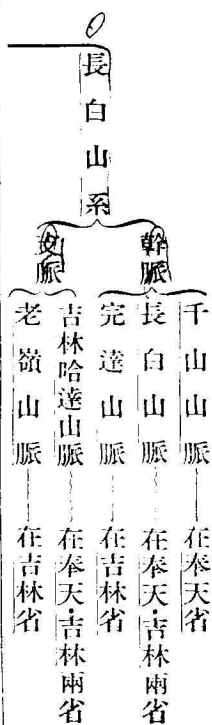 長白山系
幹脈
千山山脈——在奉天省
長白山脈——在奉天·吉林兩省
完達山脈——在吉林省
支脈
吉林哈達山脈——在奉天·吉林兩省
老嶺山脈——在吉林省